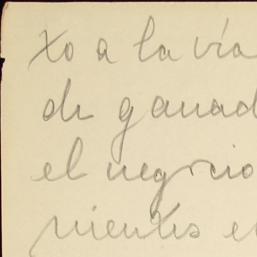 xo a la vía
de ganad
el negocio
nientes e